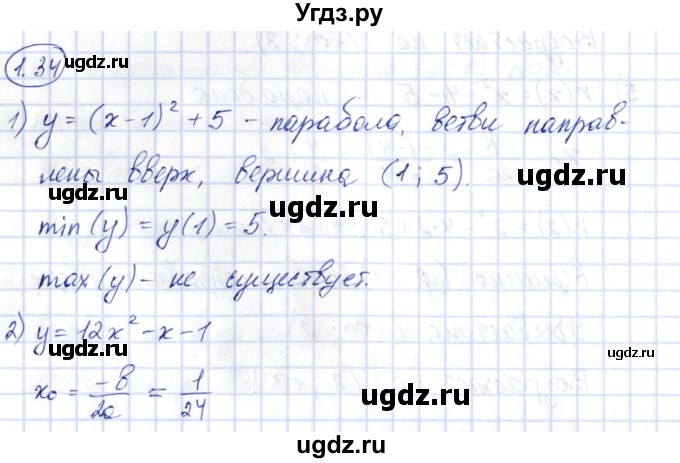 Угдз.ру
1.34
ugdz.ru ugdz.ru
1) y = (x-1)² + 5 - парабола, ветви направ-
лены вверх, вершина (1; 5).
ugdz.ru ugdz.ru
min (y) = y(1) = 5.
max (y) - не существует.
ugdz.ru ugdz.ru
2) y = 12x² - x - 1
ugdz.ru ugdz.ru
x₀ = -в/2a = 1/24
ugdz.ru ugdz.ru